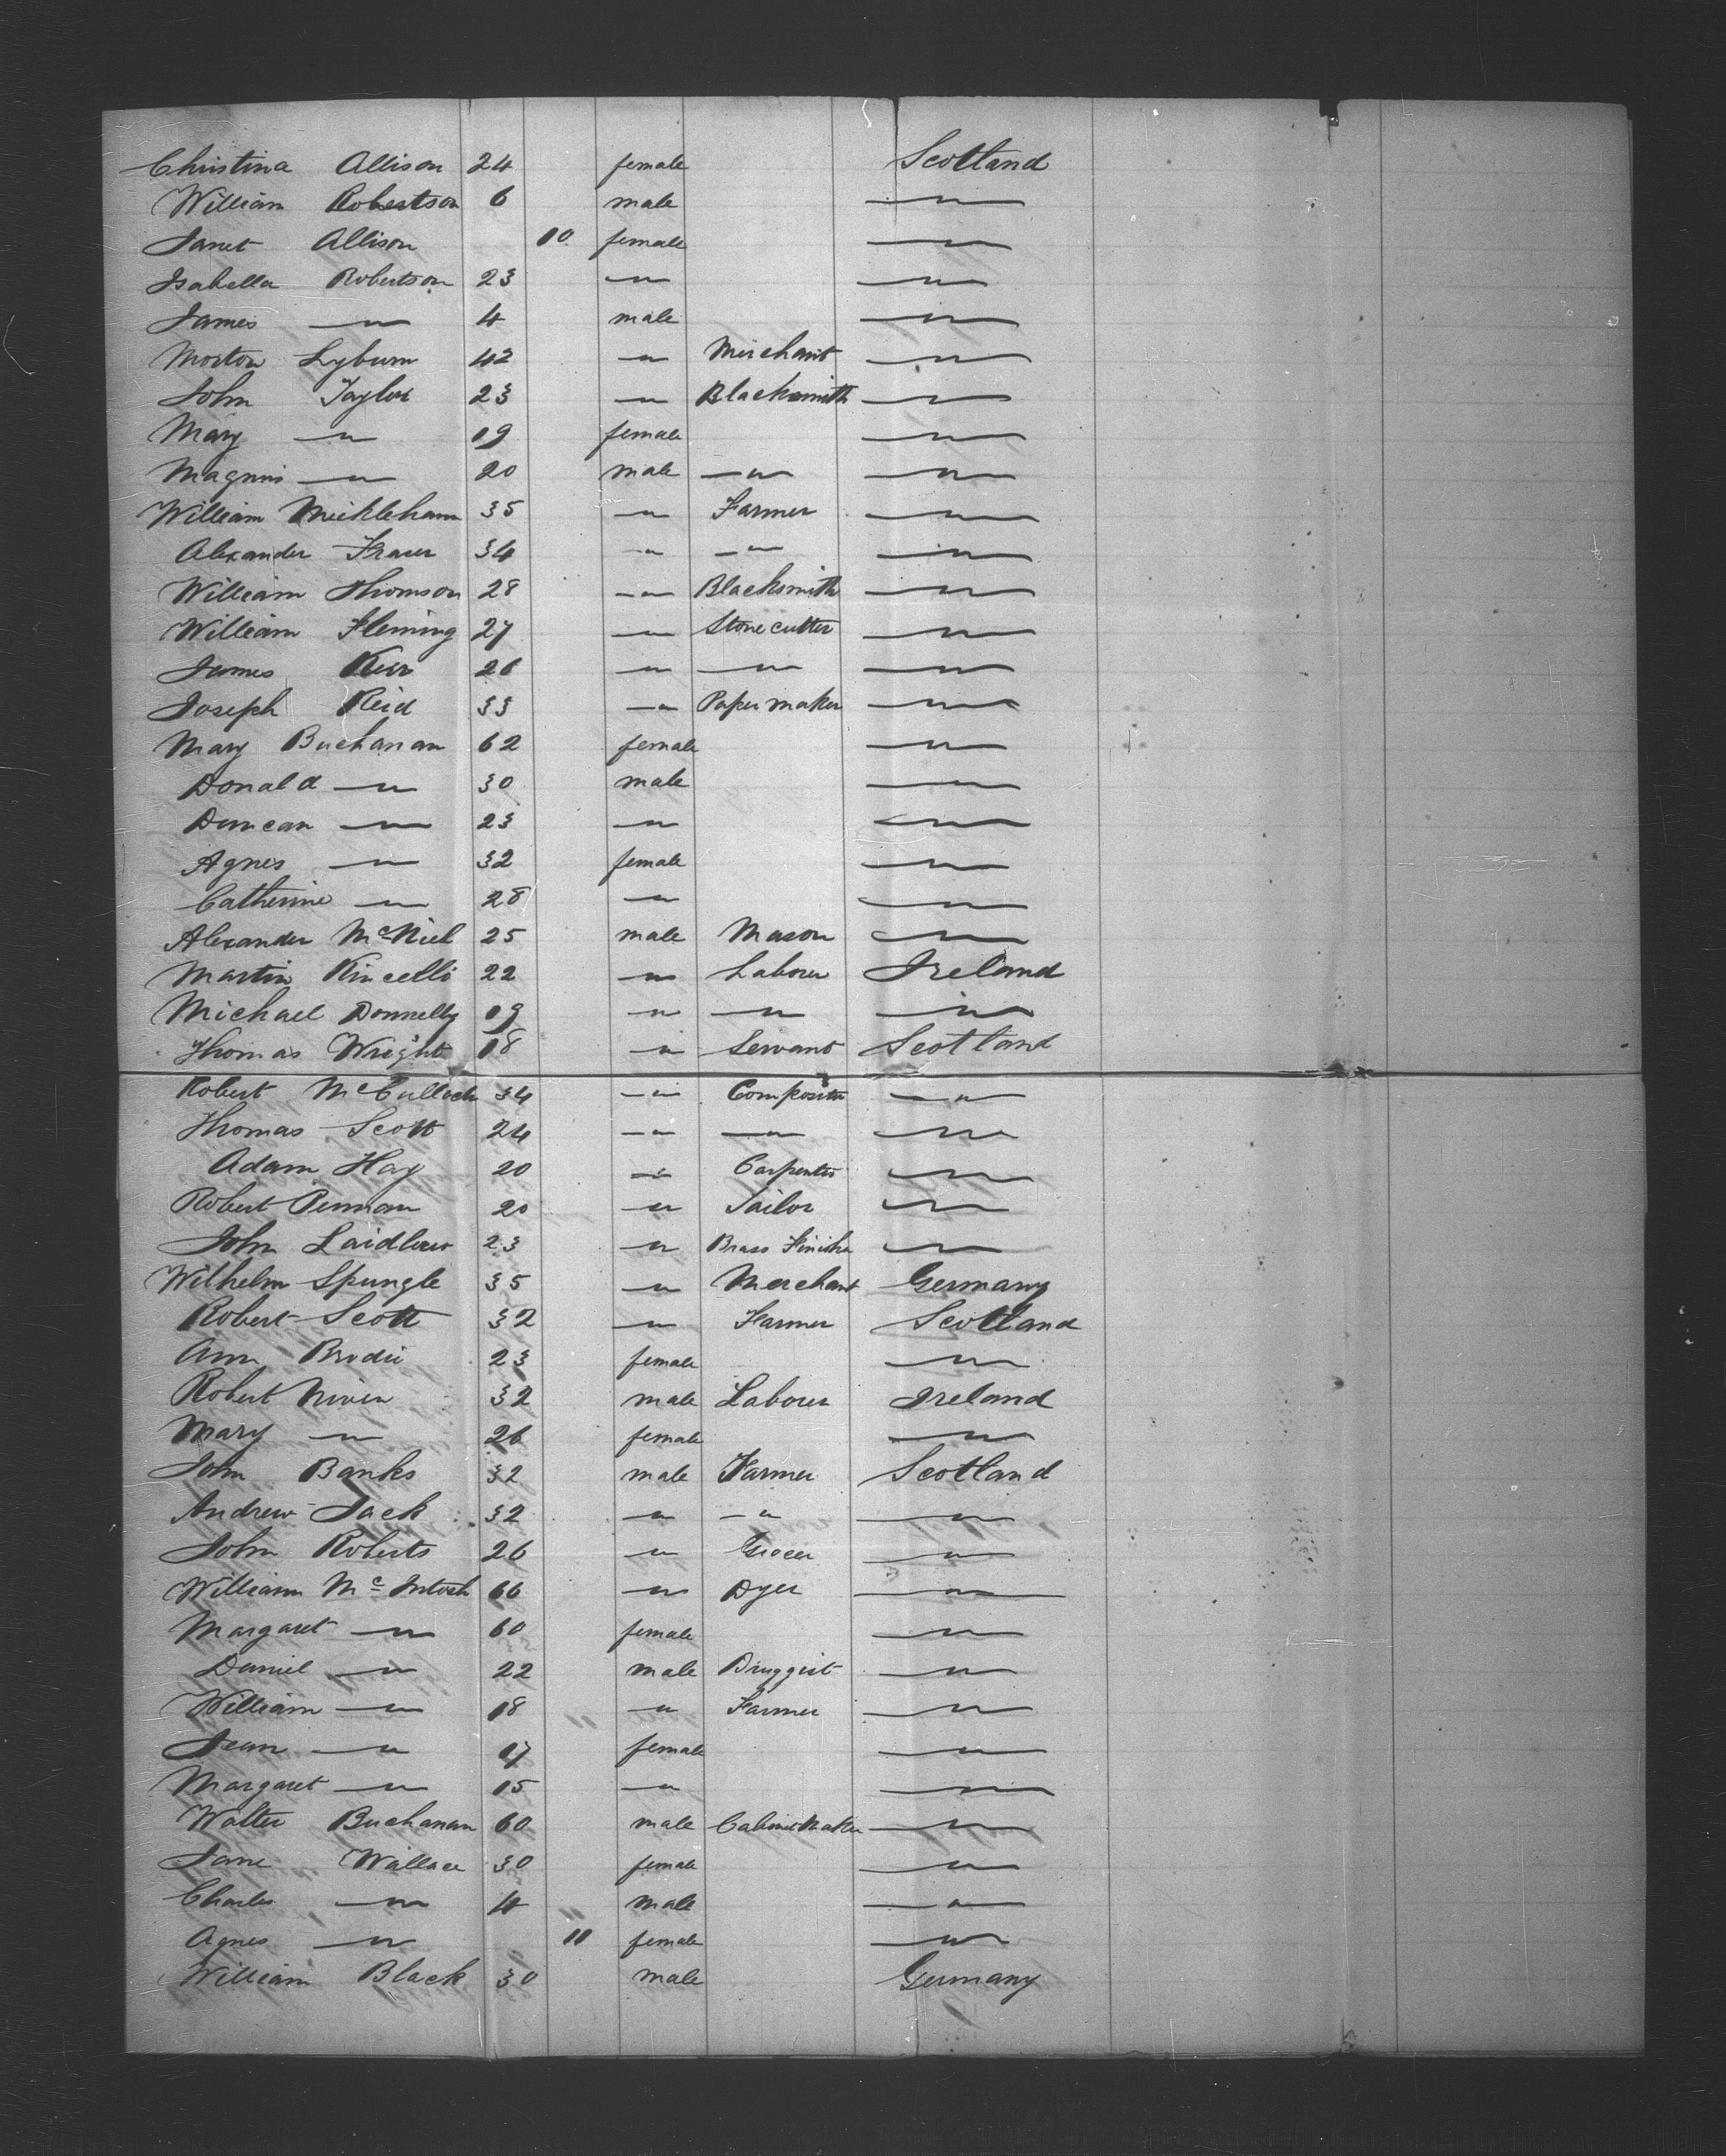 Christina Allison 24 female Scotland
William Robertson 6 male — " —
Janet Allison 10 female — " —
Isabella Robertson 23 — " — — " —
James — " — 4 male — " —
Morton Lyburn 42 — " — Merchant — " —
John Taylor 23 — " — Blacksmith — " —
Mary — " — 19 female — " —
Magnus — " — 20 male — " — — " —
William Mickleham 35 — " — Farmer — " —
Alexander Fraser 34 — " — — " — — " —
William Thomson 28 — " — Blacksmith — " —
William Fleming 27 — " — Stone cutter — " —
James Kerr 26 — " — — " — — " —
Joseph Reid 33 — " — Paper maker — " —
Mary Buchanan 62 female — " —
Donald — " — 30 male — " —
Duncan — " — 23 — " — — " —
Agnes — " — 32 female — " —
Catherine — " — 28 — " — — " —
Alexander McNiel 25 male Mason — " —
Martin Kincelli 22 — " — Laborer Ireland
Michael Donnelly 19 — " — — " — — " —
Thomas Wright 18 — " — Servant Scotland
Robert McCulloch 34 — " — Compositor — " —
Thomas Scott 24 — " — — " — — " —
Adam Hay 20 — " — Carpenter — " —
Robert Penman 20 — " — Tailor — " —
John Laidlaw 23 — " — Brass Finisher — " —
Wilhelm Spungle 35 — " — Merchant Germany
Robert Scott 32 — " — Farmer Scotland
Ann Brodie 23 female — " —
Robert Niven 32 male Laborer Ireland
Mary — " — 26 female — " —
John Banks 32 male Farmer Scotland
Andrew Jack 32 — " — — " — — " —
John Roberts 26 — " — Grocer — " —
William McIntosh 66 — " — Dyer — " —
Margaret — " — 60 female — " —
Daniel — " — 22 male Druggist — " —
William — " — 18 — " — Farmer — " —
Jean — " — 17 female — " —
Margaret — " — 15 — " — — " —
Walter Buchanan 60 male Cabinet Maker — " —
Jane Wallace 30 female — " —
Charles — " — 4 male — " —
Agnes — " — 11 female — " —
William Black 30 male Germany